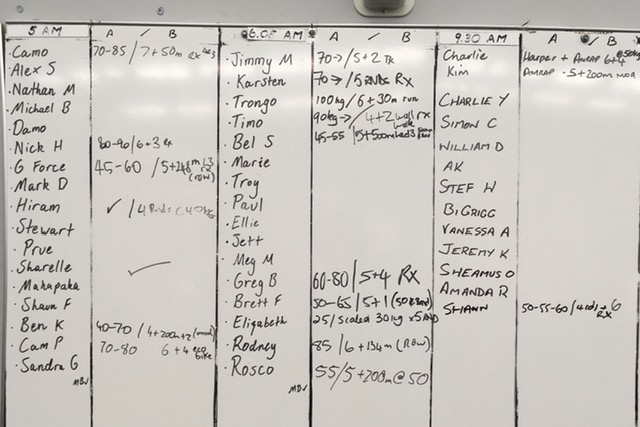 5 AM A / B
Camo 70-85 / 7+50m Rx
Alex S
Nathan M
Michael B
Damo
Nick H 80-90/6+3
G Force 45-60 / 5+248m (row)
Mark D
Hiram ✓ / 4 Rnds
Stewart
Prue
Sharelle ✓
Mahapaka
Shaun F
Ben K 40-70 / 4+200m+2 (mod)
Cam P 70-80 6+4 eco bike
Sandra G
6.05 AM A / B
Jimmy M 70→/5+2
Karsten 70→/5 RNDS RX
Trongo 100kg / 6+30m run
Timo 90kg→/4+2 wall rx
Bel S 45-55 /5+500m
Marie
Troy
Paul
Ellie
Jett
Meg M
Greg B 60-80/5+4 RX
Brett F 50-65/5+1
Elizabeth 25/ Scaled 30kg x5
Rodney 85 /6+134m (ROW)
Rosco 55/5+200m@50
9.30 AM A / B
Charlie Harper + AMRAP 6+4
Kim AMRAP - 5+200m MOD
CHARLIE Y
SIMON C
WILLIAM D
AK
STEF W
BIGRIGG
VANESSA A
JEREMY K
SHEAMUS O
AMANDA R
SHANN 50-55-60/4 rds+6 RX